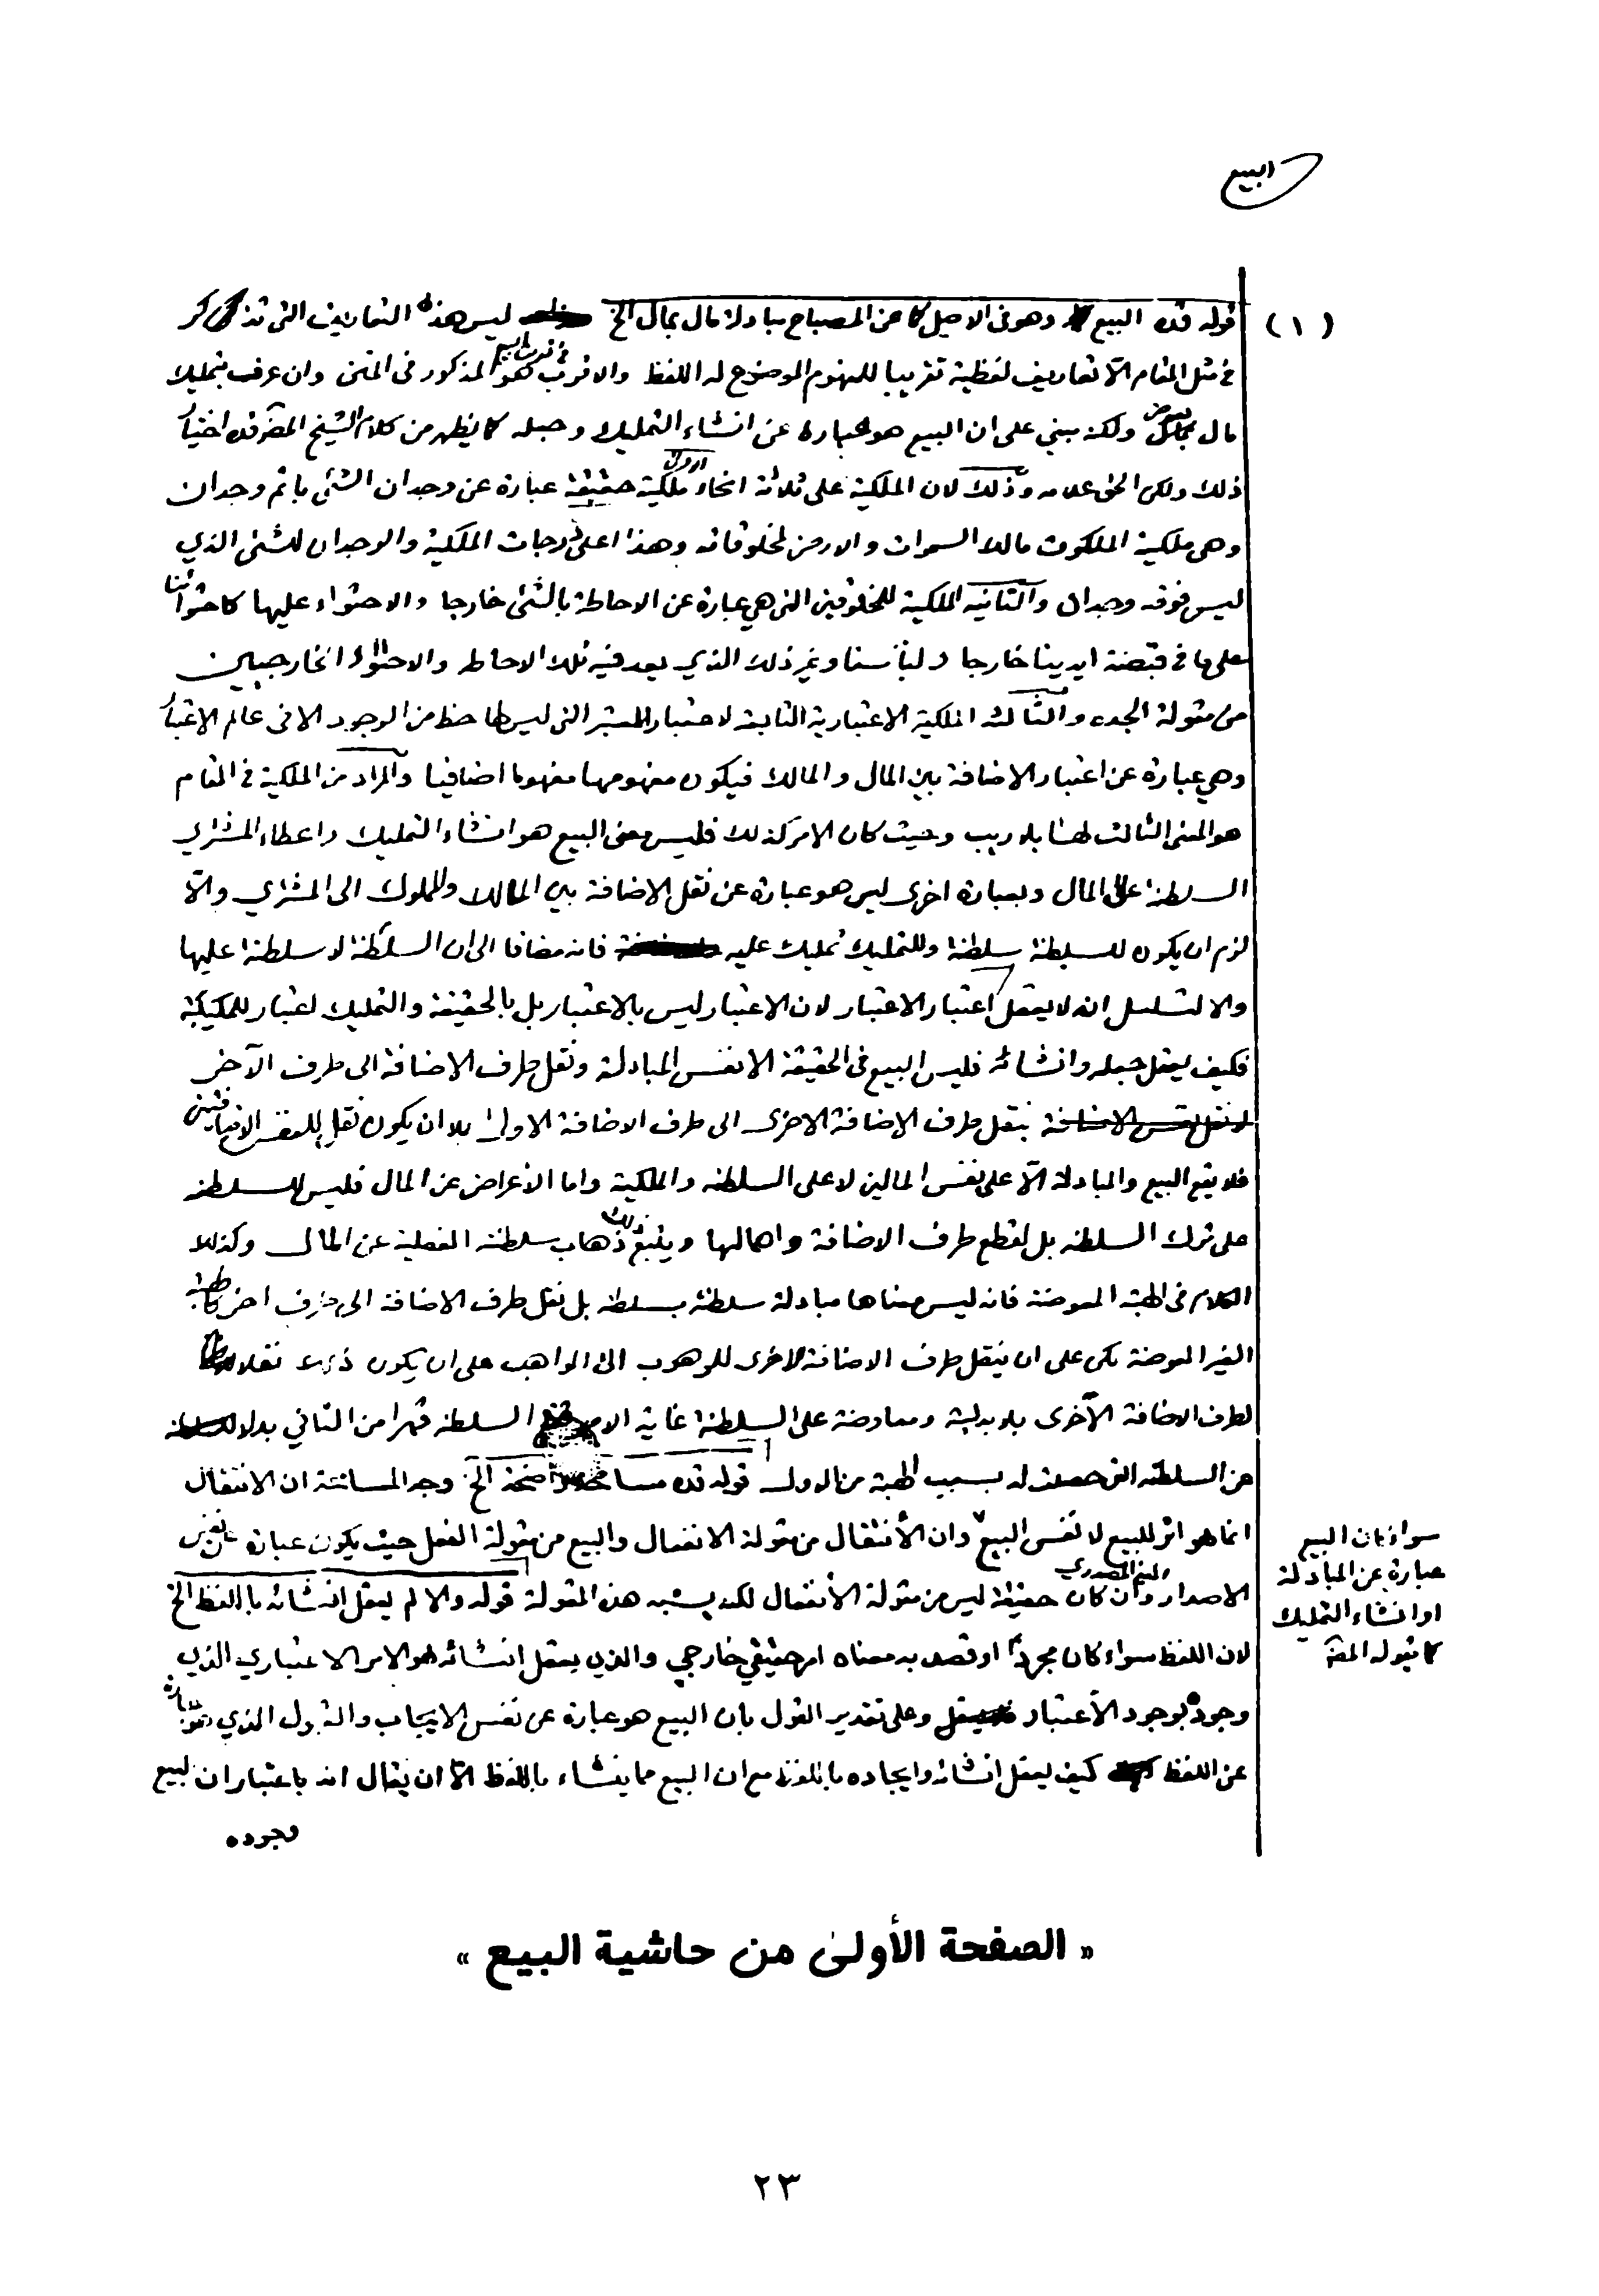 البيع
(١)
قوله قده البيع وهو فى الاصل كما عن المصباح مبادلة مال بمال الخ ليس هذه التعاريف التى تذكر
فى مثل المقام الّا تعاريف لفظية تقريبا للمفهوم الموضوع له اللفظ والاقرب فى تعريف البيع هو المذكور فى المتن وان عرف بتمليك
مال بعوض ولكنه مبني على ان البيع هو عبارة عن انشاء التمليك وجعله كما يظهر من كلام الشيخ المصنف قده اختيار
ذلك ولكن الحق عدمه وذلك لان الملكية على ثلاثة انحاء الاولى ملكية حقيقية عبارة عن وجدان الشئ باتم وجدان
وهى ملكية الملكوت مالك السموات والارض لمخلوقاته وهذا اعلى درجات الملكية والوجدان للشئ الذي
ليس فوقه وجدان والثانية الملكية للمخلوقين التى هي عبارة عن الاحاطة بالشئ خارجا والاحتواء عليها كاحتوائنا
على ما فى قبضة ايدينا خارجا ولباسنا وغير ذلك الذي يوجد فيه تلك الاحاطه والاحتواء الخارجيين
من مقولة الجده والثالث الملكية الاعتبارية التابعة لاعتبار المعتبر التى ليس لها حظ من الوجود الا فى عالم الاعتبار
وهي عبارة عن اعتبار الاضافة بين المال والمالك فيكون مفهومها مفهوما اضافيا والمراد من الملكية فى المقام
هو المعنى الثالث لها بلا ريب وحيث كان الامر كذلك فليس معنى البيع هو انشاء التمليك واعطاء المشتري
السلطنة على المال وبعبارة اخرى ليس هو عبارة عن نقل الاضافة بين المالك والمملوك الى المشتري والّا
لزم ان يكون للسلطنة سلطنة وللتمليك تمليك عليه فانه مضافا الى ان السلطنة لا سلطنة عليها
والا لتسلسل انه لا يعقل اعتبار الاعتبار لان الاعتبار ليس بالاعتبار بل بالحقيقة والتمليك اعتبار للملكية
فكيف يعقل جعله وانشائه فليس البيع فى الحقيقة الا نفس المبادلة ونقل طرف الاضافة الى طرف الآخر
بنقل طرف الاضافة الاخرى الى طرف الاضافة الاولى بلا ان يكون نقل لنفس الاضافتين
فلا يقع البيع والمبادلة الّا على نفس المالين لا على السلطنه والملكية واما الاعراض عن المال فليس للسلطنه
على ترك السلطنه بل لقطع طرف الاضافة واهمالها ويتبع ذلك ذهاب سلطنته الفعلية عن المال وكذلك
الكلام فى الهبة المعوضة فانه ليس معناها مبادلة سلطنة بسلطنه بل نقل طرف الاضافة الى طرف اخر كالهبة
الغير المعوضة لكن على ان ينقل طرف الاضافة الاخرى للموهوب الى الواهب على ان يكون نقلا
لطرف الاضافة الاخرى بلا بدلية ومعاوضة على السلطنة غاية الامر السلطنه قهرا من الثاني بدلا
عن السلطنه التى حصلت له بسبب الهبة من الاول قوله قده مسامحة واضحة الخ وجه المسامحة ان الانتقال
انما هو اثر للبيع لا نفس البيع وان الأنتقال من مقولة الانفعال والبيع من مقولة الفعل حيث يكون عبارة عن نفس
الاصدار وان كان بالمعنى المصدري حقيقة ليس من مقولة الأنفعال لكنه يشبه هذه المقولة قوله والا لم يعقل انشائه باللفظ الخ
لان اللفظ سواء كان مجردا او قصد به معناه امر حقيقي خارجي والذي يعقل انشائه هو الامر الاعتباري الذي
وجوده بوجود الأعتبار وعلى تقدير القول بان البيع هو عبارة عن نفس الايجاب والقبول الذي هو عبارة
عن اللفظ كيف يعقل انشائه وايجاده باللفظ مع ان البيع مما ينشاء باللفظ الّا ان يقال انه باعتبار ان البيع
وجوده
سواء كان البيع
عبارة عن المبادلة
او انشاء التمليك
كما يقوله المصنف
« الصفحة الأولى من حاشية البيع »
٢٣